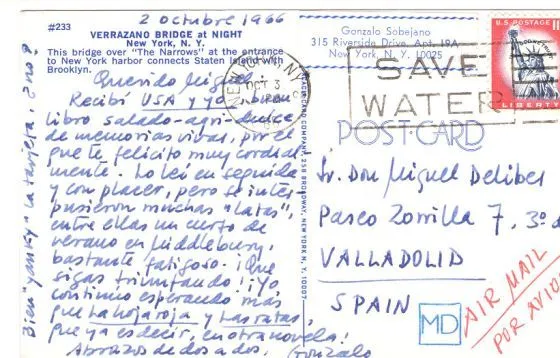 #233
VERRAZANO BRIDGE at NIGHT
New York, N. Y.
This bridge over "The Narrows" at the entrance
to New York harbor connects Staten Island with
Brooklyn.
2 octubre 1966
Querido Miguel:
Recibí USA y yo, buen
libro salado-agri-dulce
de memorias vivas, por el
que te felicito muy cordial
mente. Lo leí en seguida
y con placer, pero se inter
pusieron muchas "latas",
entre ellas un curso de
verano en Middlebury,
bastante fatigoso. ¡Que
sigas triunfando! ¡Yo
continúo esperando más
que La hoja roja y Las ratas,
que ya es decir, en otra novela!
Abrazos de dos a dos.
Gonzalo
Bien "yanky" la tarjeta, ¿no?
POST CARD
Gonzalo Sobejano
315 Riverside Drive, Apt. 19A
New York, N. Y. 10025
NEW YORK, N.Y.
OCT 3
SAVE
WATER
U.S. POSTAGE 11
LIBERTY
Sr. Don Miguel Delibes
Paseo Zorrilla 7, 3º
VALLADOLID
SPAIN
MD
AIR MAIL
POR AVIÓN
258 BROADWAY, NEW YORK, N. Y. 10007